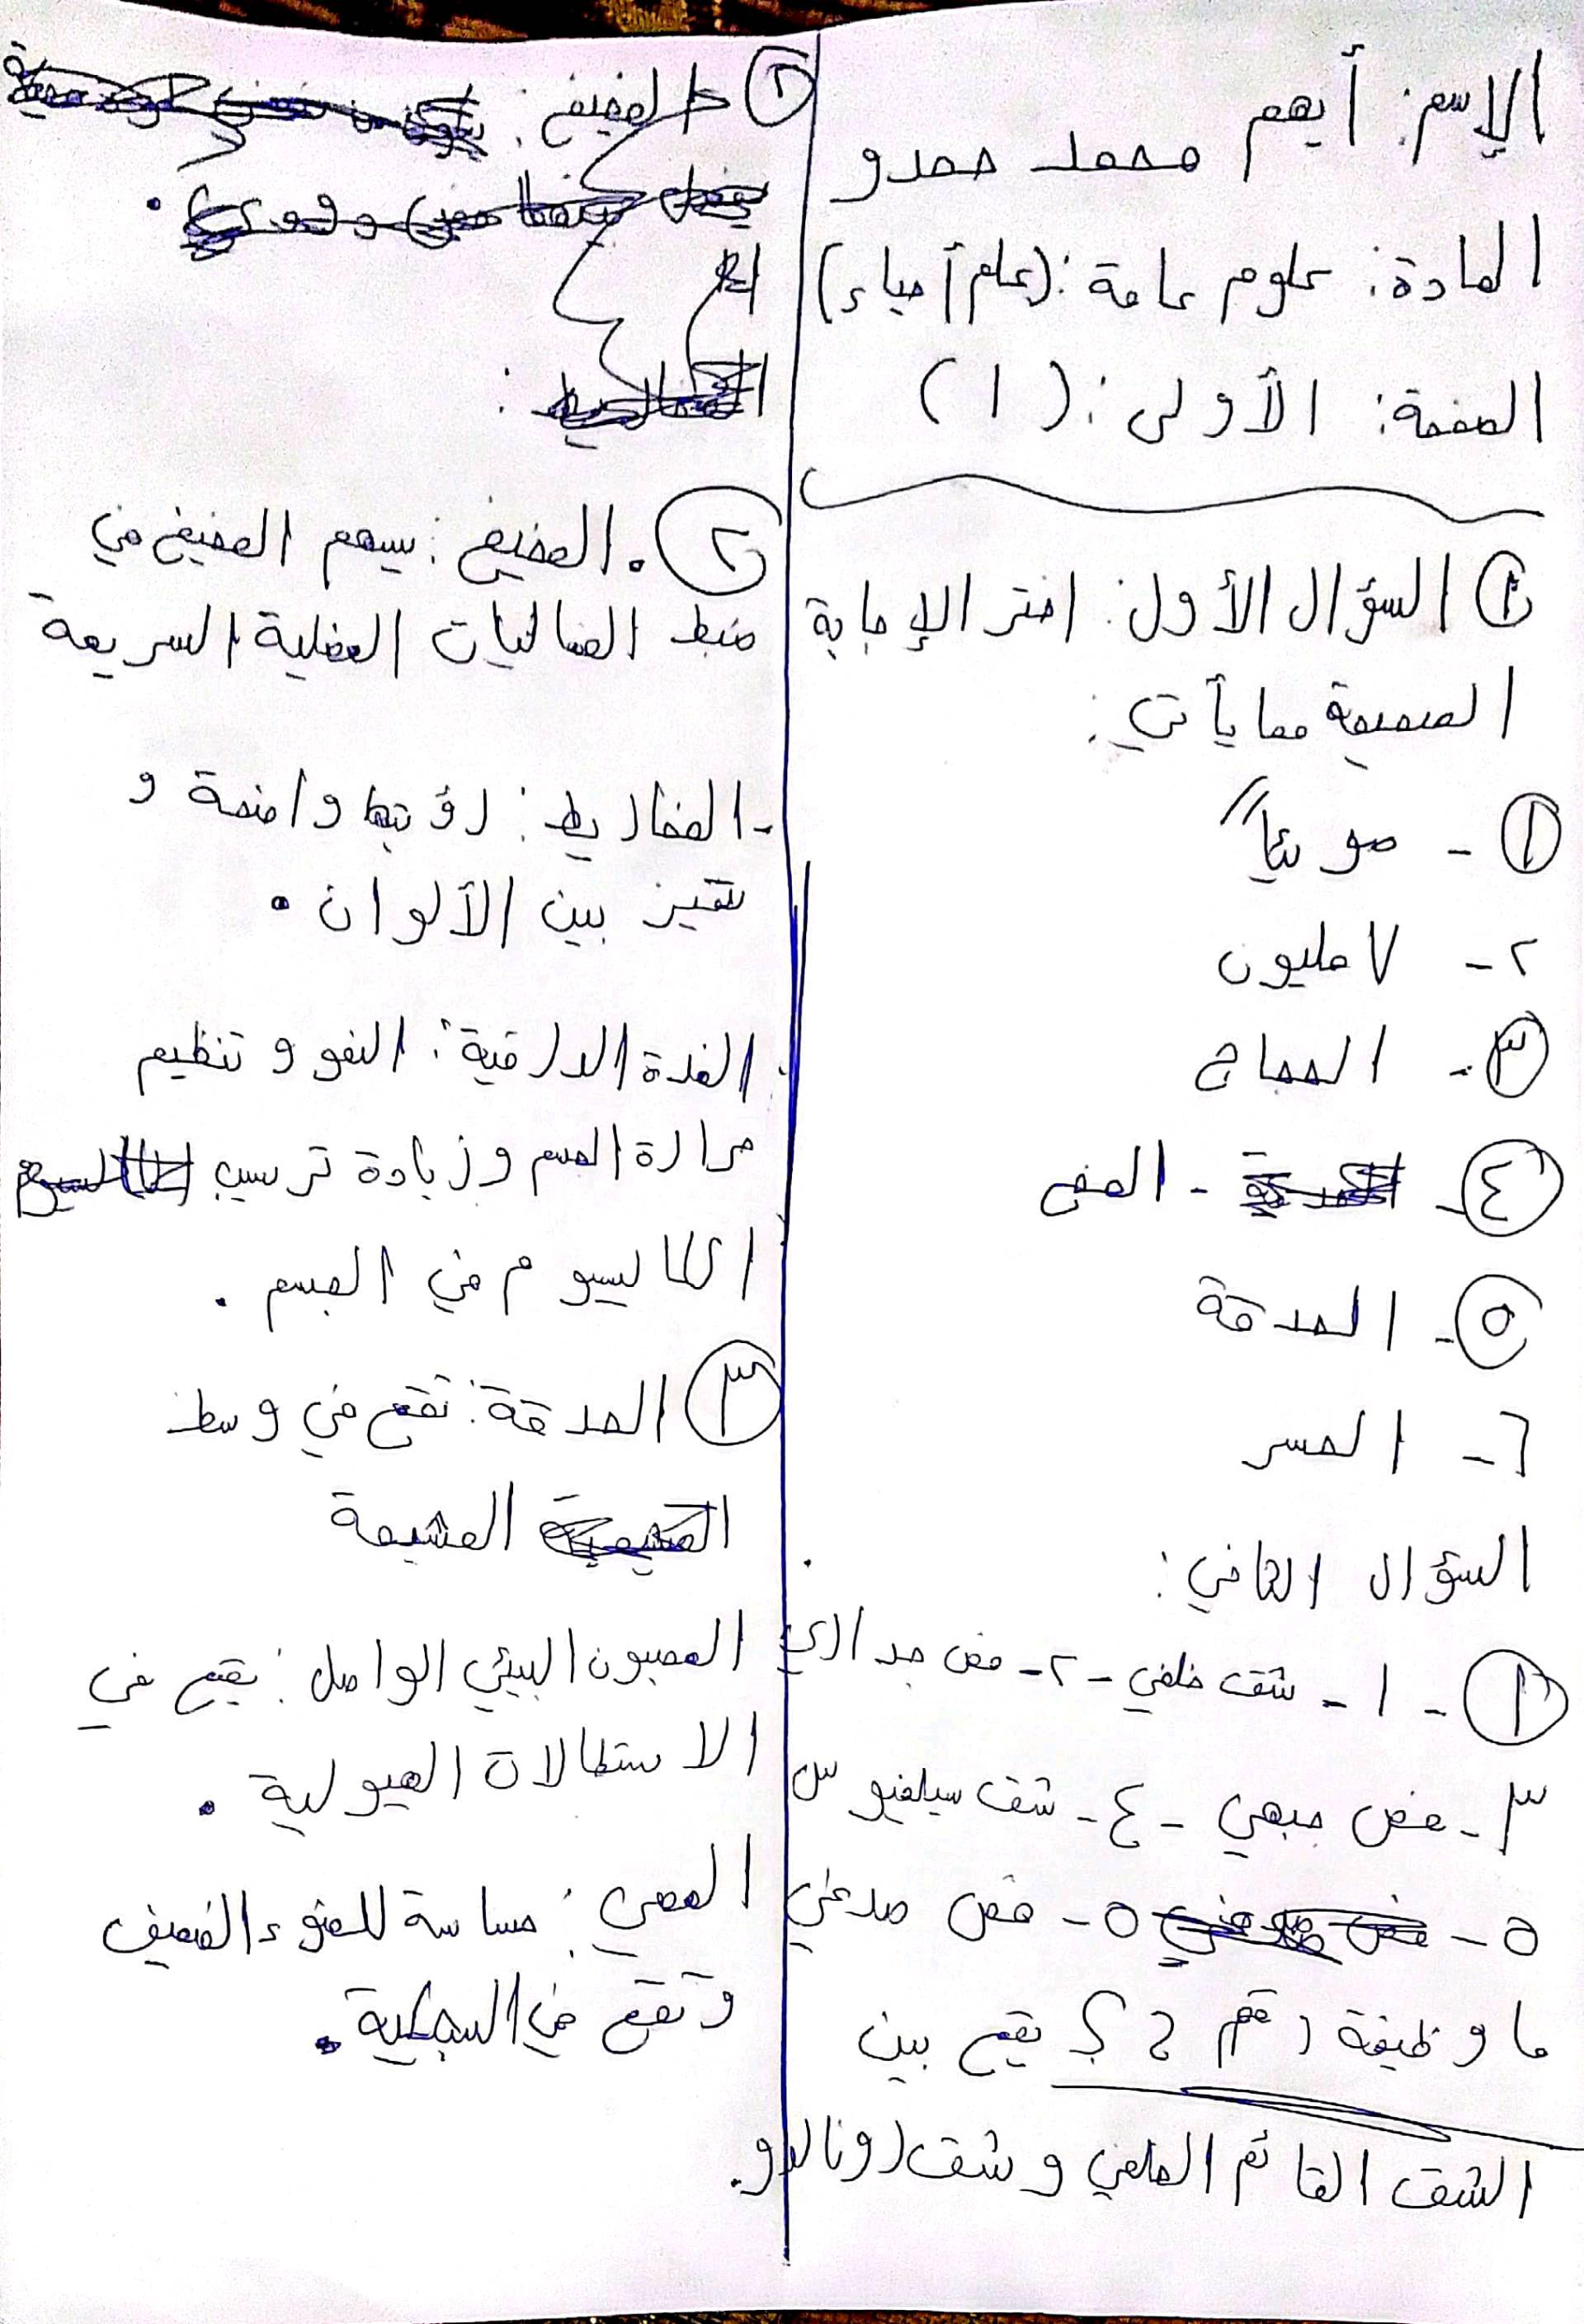 الإسم: أيهم محمد حمدو
المادة: علوم عامة: (علم أحياء)
الصفحة: الأولى: (١)
① السؤال الأول: اختر الإجابة
الصحيحة مما يأتي:
① - ضوئياً
٢ - ٧ مليون
③ - الحجاج
④ - المخ
⑤ - الحدقة
٦ - الجسر
السؤال الثاني:
① - ١ - شق خلفي - ٢ - فص جداري
٣ - فص جبهي - ٤ - شق سيلفيوس
٥ - ٥ - فص صدغي
ما وظيفة رقم ٢؟ يقع بين
الشق القائم الخلفي وشق رونالدو.
② المخيخ:
② . المخيخ: يسهم المخيخ في
ضبط الفعاليات العضلية السريعة
- المخاريط: رؤيتها واضحة و
تميز بين الألوان .
الغدة الدرقية: النمو و تنظيم
حرارة الجسم وزيادة ترسيب
الكاليسيوم في الجسم .
③ الحدقة: تقع في وسط
المشيمة
العصبون البيئي الواصل: يقع في
الاستطالات الهيولية .
العصي: حساسة للضوء الضعيف
وتقع في الشبكية.